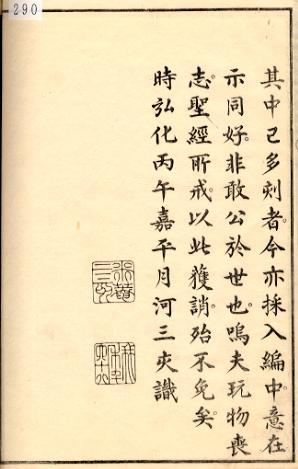 290
其中已多刻者。今亦採入編中。意在
示同好。非敢公於世也。嗚夫玩物喪
志。聖經所戒。以此獲誚。殆不免矣。
時弘化丙午嘉平月河三亥識